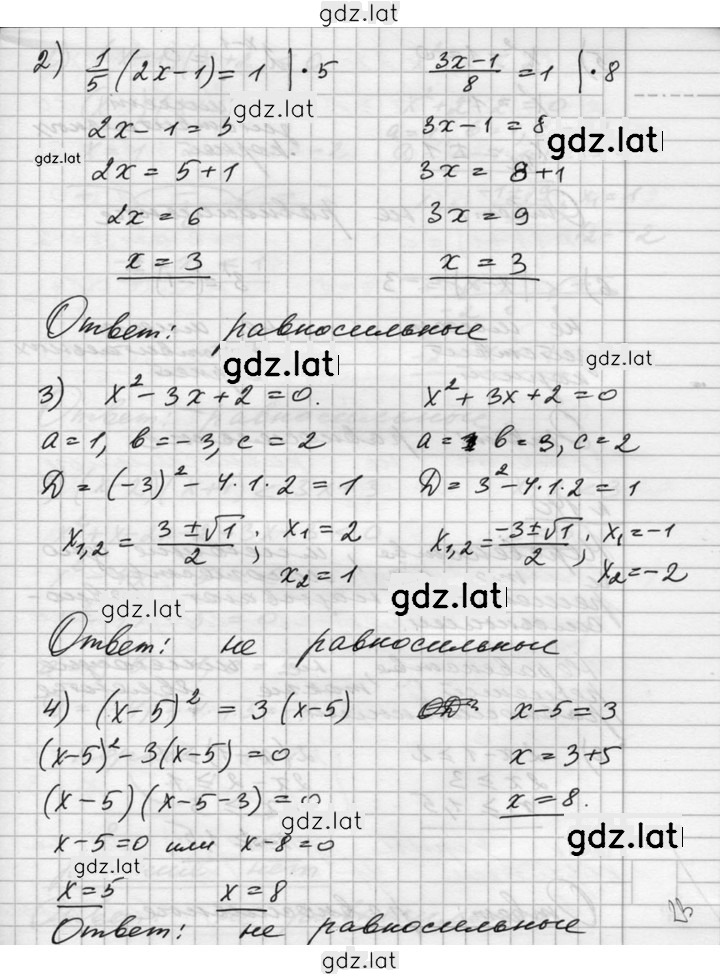 gdz.lat
2) 1/5 (2x-1) = 1 | · 5    (3x-1)/8 = 1 | · 8
gdz.lat
2x - 1 = 5    3x - 1 = 8
gdz.lat
gdz.lat
2x = 5 + 1    3x = 8 + 1
2x = 6    3x = 9
x = 3    x = 3
Ответ: равносильные
gdz.lat
gdz.lat
3) x² - 3x + 2 = 0.    x² + 3x + 2 = 0
a = 1, в = -3, c = 2    a = 1 в = 3, c = 2
Д = (-3)² - 4·1·2 = 1    Д = 3² - 4·1·2 = 1
x₁,₂ = (3 ± √1)/2 ; x₁ = 2    x₁,₂ = (-3 ± √1)/2 ; x₁ = -1
x₂ = 1    x₂ = -2
gdz.lat
gdz.lat
Ответ: не равносильные
4) (x-5)² = 3 (x-5)    x - 5 = 3
(x-5)² - 3(x-5) = 0    x = 3 + 5
(x-5)(x-5-3) = 0    x = 8.
gdz.lat
gdz.lat
x - 5 = 0 или x - 8 = 0
gdz.lat
x = 5    x = 8
Ответ: не равносильные
gdz.lat